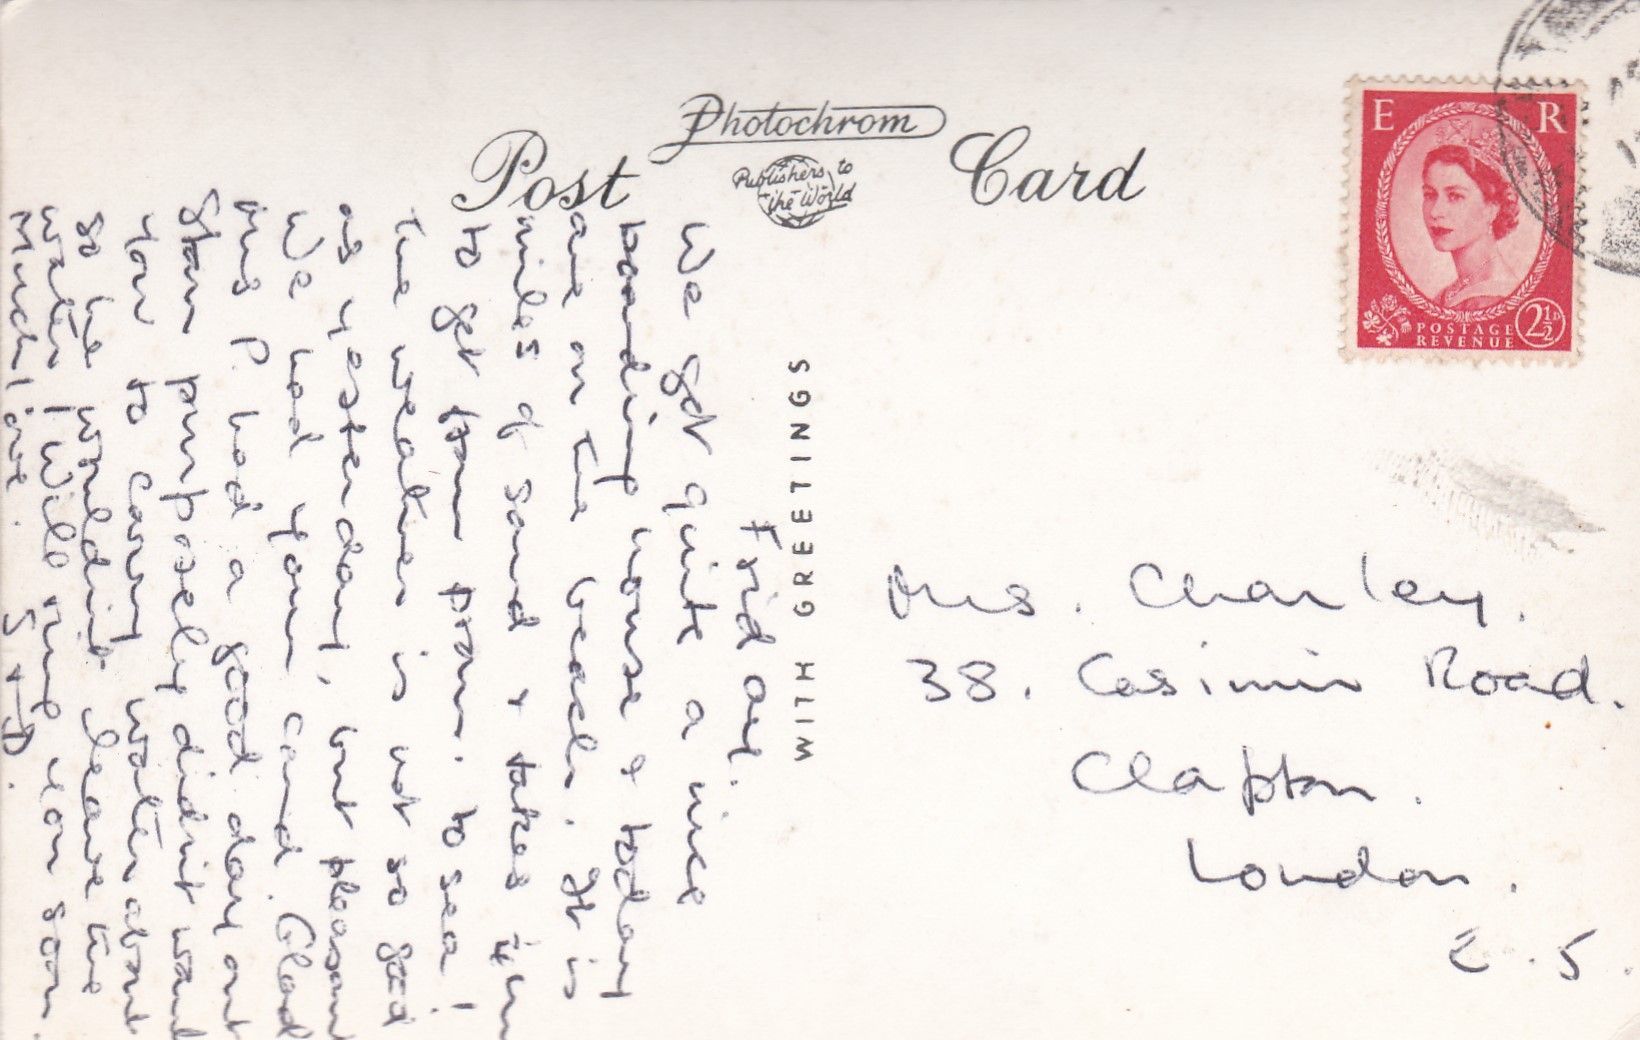 Photochrom
Post Card
Publishers to
the World
E R
POSTAGE
REVENUE
2½D
WITH GREETINGS
Friday.
We got quite a nice
boarding house & today
are on the beach. It is
miles of sand & takes
to get from prom. to sea!
the weather is not so good
as yesterday, but pleasant
We had your card. Glad
P. had a good day out
Stan purposely didn't want
you to carry water about
so he wouldn't leave the
water. Will ring you soon.
Much love. S & D.
Mrs. Charley.
38. Casimir Road.
Clapton.
London.
E.5.